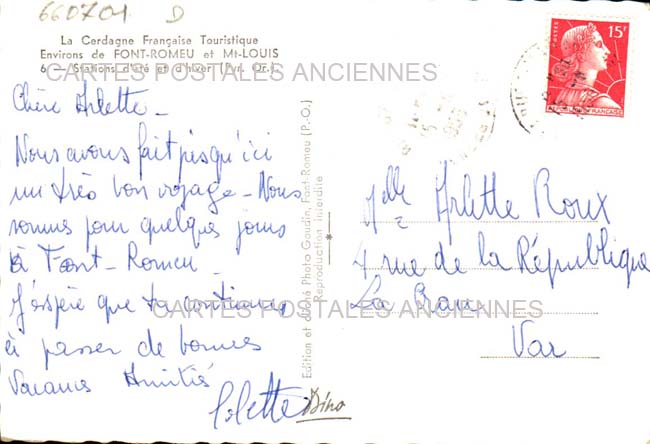 660701 D
La Cerdagne Française Touristique
Environs de FONT-ROMEU et Mt-LOUIS
6 — Stations d'été et d'hiver (Pyr. Or.)
CARTES POSTALES ANCIENNES
15F
POSTES
REPUBLIQUE FRANÇAISE
Chère Arlette —
Nous avons fait jusqu'ici
un très bon voyage — Nous
sommes pour quelques jours
à Font-Romeu —
J'espère que tu continues
à passer de bonnes
vacances Amitiés
Colette
Dino
Edition et cliché Photo Gaudin, Font-Romeu (P.-O.)
Reproduction interdite
Mlle Arlette Roux
7 rue de la République
La Crau
Var
CARTES POSTALES ANCIENNES